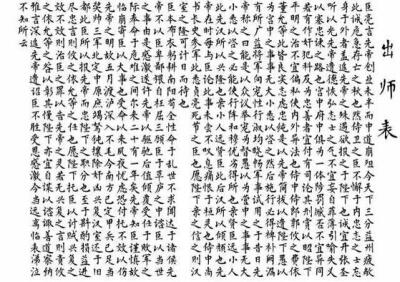 出师表
臣亮言先帝创业未半而中道崩殂今天下三分益州疲敝
此诚危急存亡之秋也然侍卫之臣不懈于内忠志之士忘
身于外者盖追先帝之殊遇欲报之于陛下也诚宜开张圣
听以光先帝遗德恢弘志士之气不宜妄自菲薄引喻失义
以塞忠谏之路也宫中府中俱为一体陟罚臧否不宜异同
若有作奸犯科及为忠善者宜付有司论其刑赏以昭陛下
平明之理不宜偏私使内外异法也侍中侍郎郭攸之费祎
董允等此皆良实志虑忠纯是以先帝简拔以遗陛下愚以
为宫中之事事无大小悉以咨之然后施行必得裨补阙漏
有所广益将军向宠性行淑均晓畅军事试用之于昔日先
帝称之曰能是以众议举宠为督愚以为营中之事事无大
小悉以咨之必能使行阵和穆优劣得所也亲贤臣远小人
此先汉所以兴隆也亲小人远贤臣此后汉所以倾颓也先
帝在时每与臣论此事未尝不叹息痛恨于桓灵也侍中尚
书长史参军此悉贞亮死节之臣也愿陛下亲之信之则汉室
之隆可计日而待也
臣本布衣躬耕南阳苟全性命于乱世不求闻达于诸侯先
帝不以臣卑鄙猥自枉屈三顾臣于草庐之中谘臣以当世
之事由是感激遂许先帝以驱驰后值倾覆受任于败军之
际奉命于危难之间尔来二十有一年矣先帝知臣谨慎故
临崩寄臣以大事也受命以来夙夜忧虑恐付托不效以伤
先帝之明故五月渡泸深入不毛今南方已定甲兵已足当
奖率三军北定中原庶竭驽钝攘除奸凶兴复汉室还于旧
都此臣所以报先帝而忠陛下之职分也至于斟酌损益进
尽忠言则攸之祎允等之任也愿陛下托臣以讨贼兴复之
效不效则治臣之罪以告先帝之灵若无兴复之言则责攸
之祎允等之咎以彰其慢陛下亦宜自谋以谘诹善道察纳
雅言深追先帝遗诏臣不胜受恩感激今当远离临表涕泣
不知所云